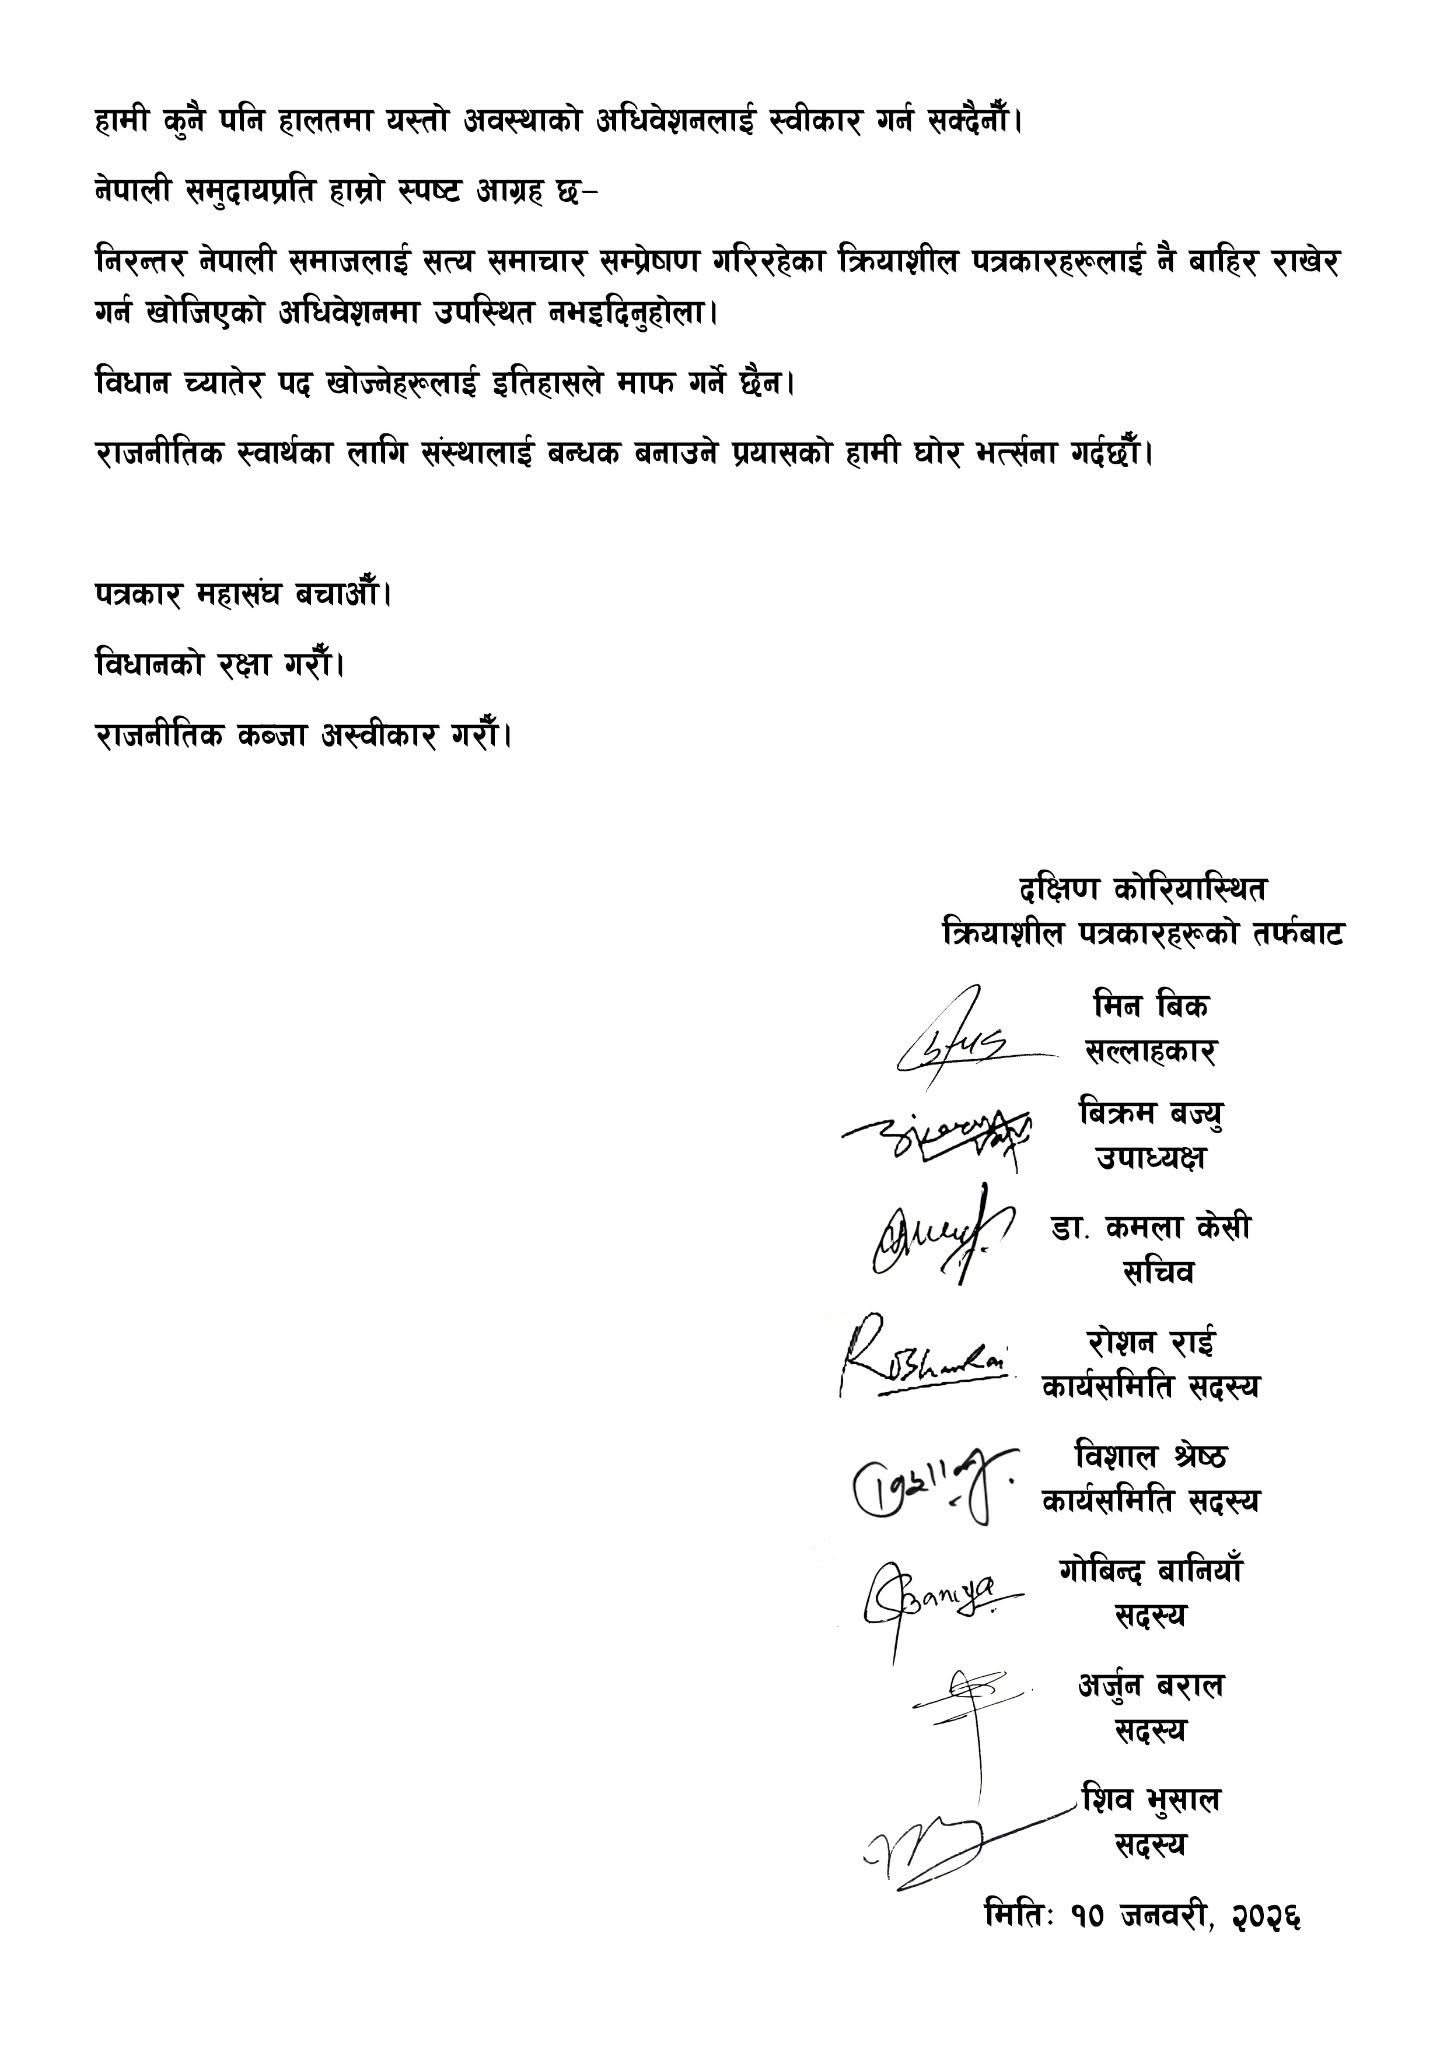 हामी कुनै पनि हालतमा यस्तो अवस्थाको अधिवेशनलाई स्वीकार गर्न सक्दैनौँ।
नेपाली समुदायप्रति हाम्रो स्पष्ट आग्रह छ–
निरन्तर नेपाली समाजलाई सत्य समाचार सम्प्रेषाण गरिरहेका क्रियाशील पत्रकारहरूलाई नै बाहिर राखेर
गर्न खोजिएको अधिवेशनमा उपस्थित नभइदिनुहोला।
विधान च्यातेर पद खोज्नेहरूलाई इतिहासले माफ गर्ने छैन।
राजनीतिक स्वार्थका लागि संस्थालाई बन्धक बनाउने प्रयासको हामी घोर भर्त्सना गर्दछौँ।
पत्रकार महासंघ बचाऔँ।
विधानको रक्षा गरौँ।
राजनीतिक कब्जा अस्वीकार गरौँ।
दक्षिण कोरियास्थित
क्रियाशील पत्रकारहरूको तर्फबाट
मिन बिक
सल्लाहकार
बिक्रम बज्यु
उपाध्यक्ष
डा. कमला केसी
सचिव
रोशन राई
कार्यसमिति सदस्य
विशाल श्रेष्ठ
कार्यसमिति सदस्य
Baniya
गोबिन्द बानियाँ
सदस्य
अर्जुन बराल
सदस्य
शिव भुसाल
सदस्य
मितिः १० जनवरी, २०२६